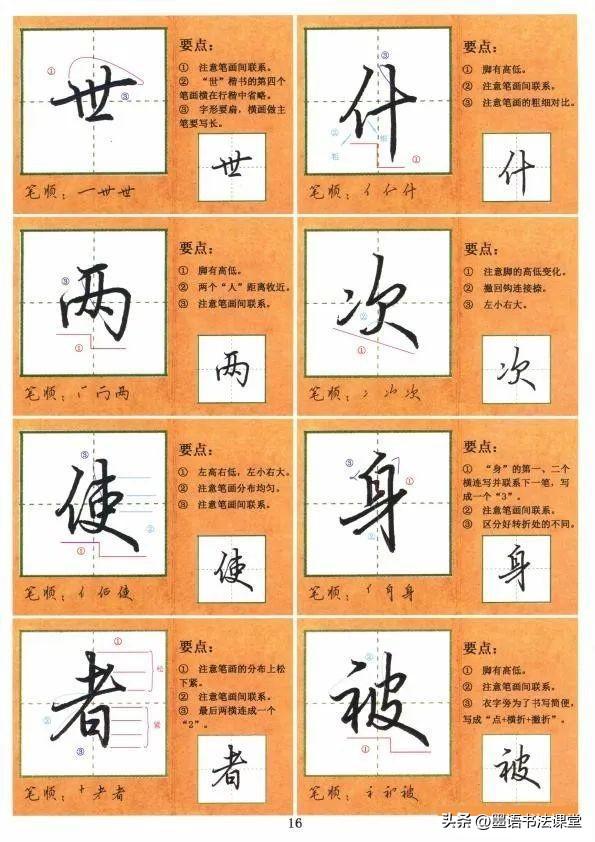 世
①
③
要点：
① 注意笔画间联系。
② “世”楷书的第四个
笔画横在行楷中省略。
③ 字形要扁，横画做主
笔要写长。
世
笔顺：一世世
什
③
②
粗
细
①
要点：
① 脚有高低。
② 注意笔画间联系。
③ 注意笔画的粗细对比。
什
笔顺：亻仁什
两
③
①
要点：
① 脚有高低。
② 两个“人”距离收近。
③ 注意笔画间联系。
两
笔顺：丙两
次
②
①
要点：
① 注意脚的高低变化。
② 撇回钩连接捺。
③ 左小右大。
次
笔顺：冫次
使
③
②
①
要点：
① 左高右低，左小右大。
② 注意笔画分布均匀。
③ 注意笔画间联系。
使
笔顺：亻佰使
身
③
①
②
要点：
① “身”的第一、二个
横连写并联系下一笔，写
成一个“3”。
② 注意笔画间联系。
③ 区分好转折处的不同。
身
笔顺：亻身身
者
①
松
②
紧
③
要点：
① 注意笔画的分布上松
下紧。
② 注意笔画间联系。
③ 最后两横连成一个
“2”。
者
笔顺：十耂者
被
②
③
①
要点：
① 脚有高低。
② 注意笔画间联系。
③ 衣字旁为了书写简便，
写成“点+横折+撇折”。
被
笔顺：衤初被
16
头条 @墨语书法课堂